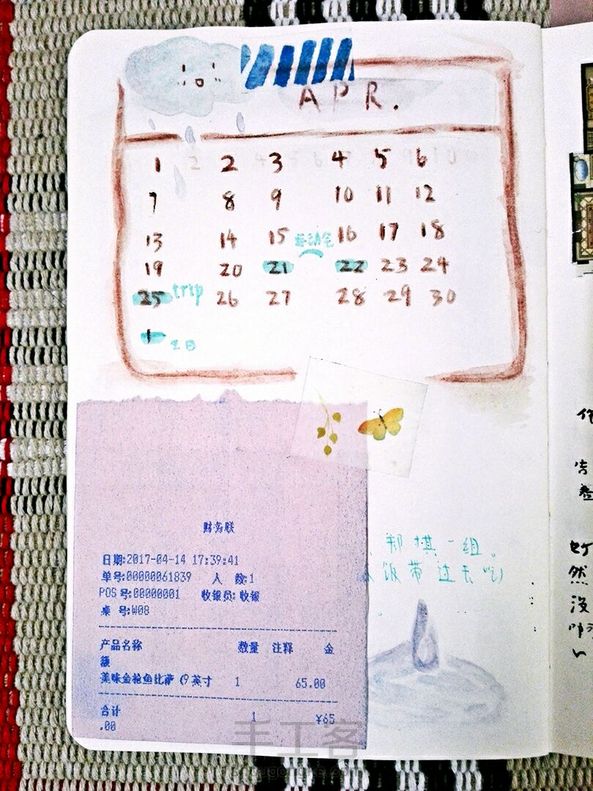 APR.
1 2 3 4 5 6
7 8 9 10 11 12
13 14 15 16 17 18
19 20 21 22 23 24
25 trip 26 27 28 29 30
1 生日
财务联
日期:2017-04-14 17:39:41
单号:00000061839 人 数:1
POS号:00000001 收银员:收银
桌 号:W08
产品名称 数量 注释 金
额
美味金枪鱼比萨 (9英寸 1 65.00
合计 1 ¥65
.00
一组。
饭带过去吃)
然
没
手工客